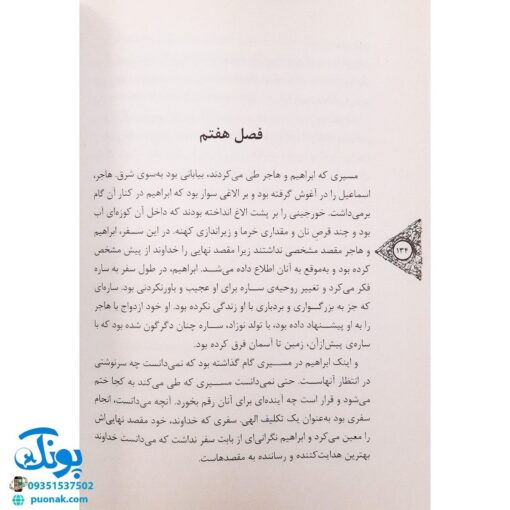 فصل هفتم
مسیری که ابراهیم و هاجر طی می‌کردند، بیابانی بود به‌سوی شرق. هاجر،
اسماعیل را در آغوش گرفته بود و بر الاغی سوار بود که ابراهیم در کنار آن گام
برمی‌داشت. خورجینی را بر پشت الاغ انداخته بودند که داخل آن کوزه‌ای آب
بود و چند قرص نان و مقداری خرما و زیراندازی کهنه. در این سفر، ابراهیم
و هاجر مقصد مشخصی نداشتند زیرا مقصد نهایی را خداوند از پیش مشخص
۱۳۴
کرده بود و به‌موقع به آنان اطلاع داده می‌شد. ابراهیم، در طول سفر به ساره
فکر می‌کرد و تغییر روحیه‌ی ساره برای او عجیب و باورنکردنی بود. ساره‌ای
که جز به بزرگواری و بردباری با او زندگی نکرده بود. او خود ازدواج با هاجر
را به او پیشنهاد داده بود، با تولد نوزاد، ساره چنان دگرگون شده بود که با
ساره‌ی پیش‌ازآن، زمین تا آسمان فرق کرده بود.
و اینک ابراهیم در مسیری گام گذاشته بود که نمی‌دانست چه سرنوشتی
در انتظار آنهاست. حتی نمی‌دانست مسیری که طی می‌کند به کجا ختم
می‌شود و قرار است چه آینده‌ای برای آنان رقم بخورد. آنچه می‌دانست، انجام
سفری بود به‌عنوان یک تکلیف الهی. سفری که خداوند، خود مقصد نهایی‌اش
را معین می‌کرد و ابراهیم نگرانی‌ای از بابت سفر نداشت که می‌دانست خداوند
بهترین هدایت‌کننده و رساننده به مقصدهاست.
پونک
09351537502
puonak.com